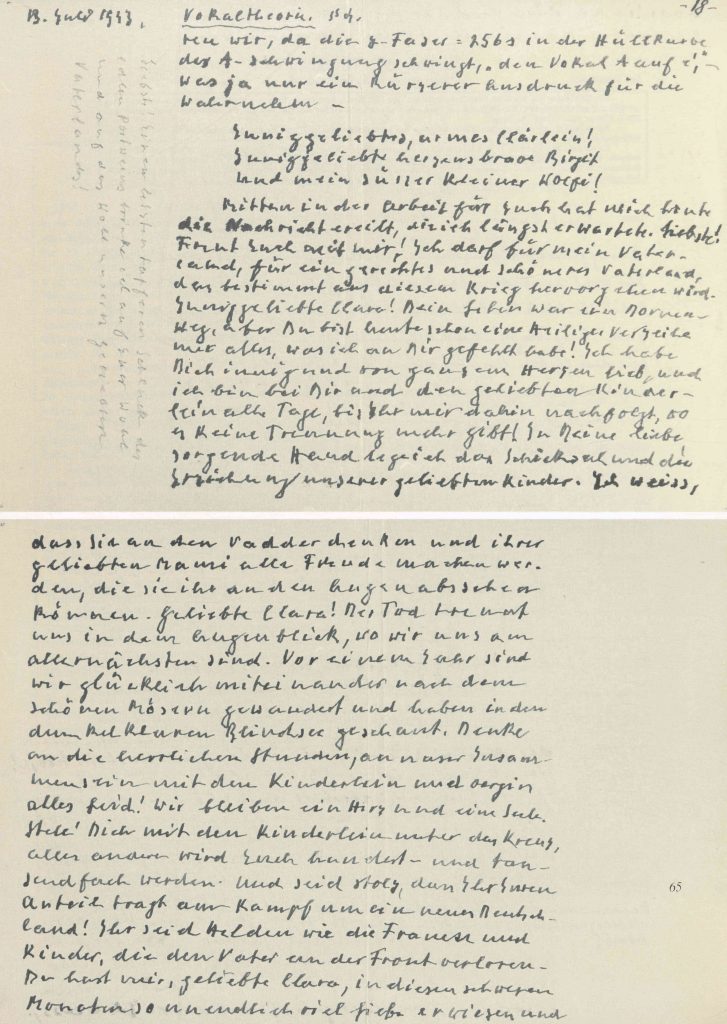 13. Juli 1943.
Vokaltheorie.
- 18 -
ren wir, da die z-Faser = 256 s in der Hüllkurve
der A-schwingung schwingt, „den Vokal A auf c'," –
was ja nur ein kürzerer Ausdruck für die
Wahrnehm –
Inniggeliebtes, armes Clärlein!
Inniggeliebte herzensbrave Birgit
und mein süsser kleiner Wolfi!
Mitten in der Arbeit für Euch hat mich heute
die Nachricht ereilt, die ich längst erwartete. Liebste!
Freut Euch mit mir! Ich darf für mein Vater-
land, für ein gerechtes und schöneres Vaterland,
das bestimmt aus diesem Krieg hervorgehen wird.
Inniggeliebte Clara! Dein Leben war ein Dornen-
weg, aber Du bist heute schon eine Heilige. Verzeihe
mir alles, was ich an Dir gefehlt habe! Ich habe
Dich innig und von ganzem Herzen lieb, und
ich bin bei Dir und den geliebten Kinder-
lein alle Tage, bis Ihr mir dahin nachfolgt, wo
es keine Trennung mehr gibt! In Deine liebe
sorgende Hand lege ich das Schicksal und die
Erziehung unserer geliebten Kinder. Ich weiss,
Liebste! Einen letzten tapferen Schluck des
edlen Portweins trinke ich auf Euer Wohl
und auf das Wohl unseres geliebten
Vaterlandes!
dass sie an den Vadder denken und ihrer
geliebten Mami alle Freude machen wer-
den, die sie ihr an den Augen absehen
können. Geliebte Clara! Der Tod trennt
uns in dem Augenblick, wo wir uns am
allernächsten sind. Vor einem Jahr sind
wir glücklich miteinander nach dem
schönen Mösern gewandert und haben in den
dunkelklaren Blindsee geschaut. Denke
an die herrlichen Stunden, an unser Zusam-
mensein mit den Kinderlein und vergiss
alles Leid! Wir bleiben ein Herz und eine Seele.
Stell' Dich mit den Kinderlein unter das Kreuz,
alles andere wird Euch hundert- und tau-
sendfach werden. Und seid stolz, dass Ihr Euren
Anteil tragt am Kampf um ein neues Deutsch-
land! Ihr seid Helden wie die Frauen und
Kinder, die den Vater an der Front verloren.
Du hast mir, geliebte Clara, in diesen schweren
Monaten so unendlich viel Liebe erwiesen und
65